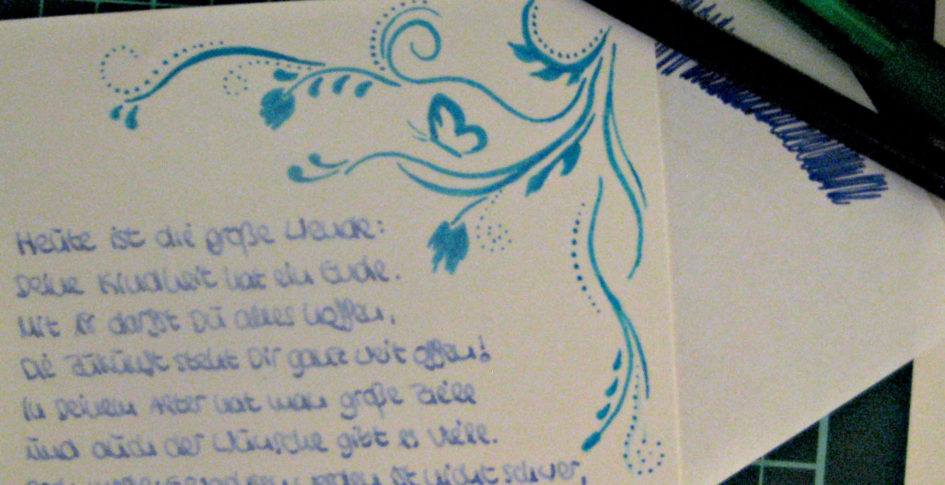 Heute ist die große Wende:
Deine Kindheit hat ein Ende.
Mit 18 darfst Du alles hoffen,
Die Zukunft steht Dir ganz weit offen!
In Deinem Alter hat man große Ziele
und auch der Wünsche gibt es viele.
werden ist nicht schwer,